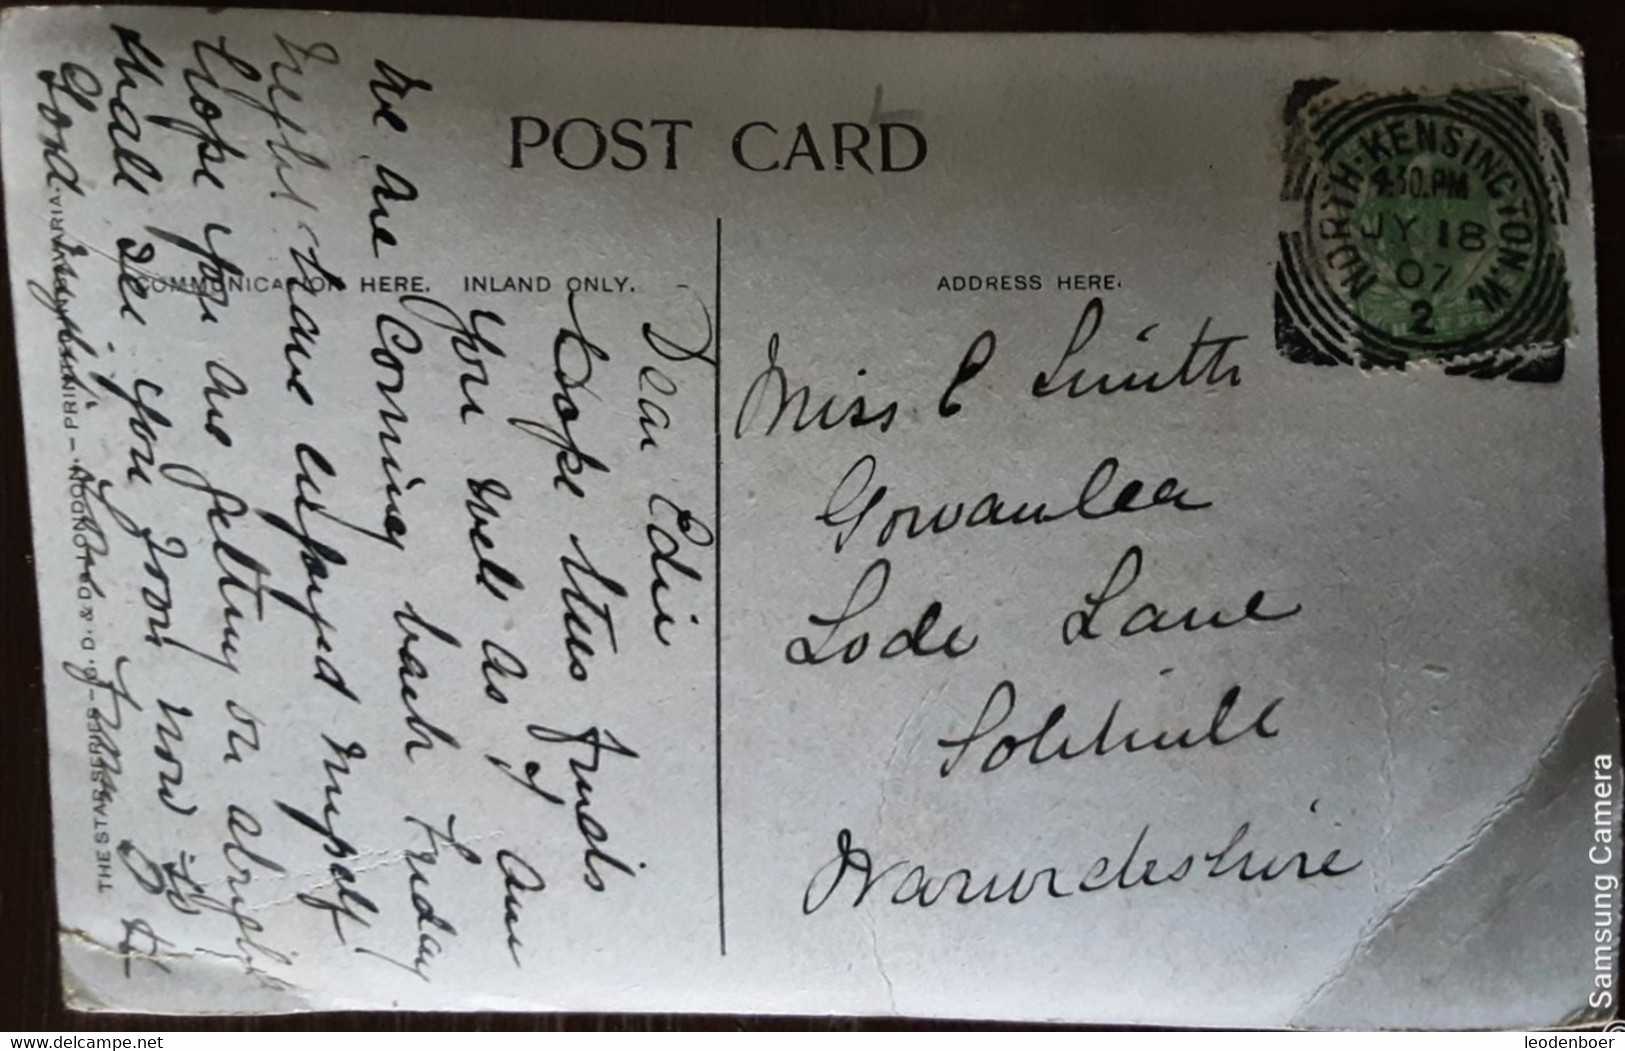 POST CARD
COMMUNICATION HERE. INLAND ONLY.
ADDRESS HERE.
NORTH·KENSINGTON.W.
4.30.PM
JY 18
07
2
Miss E Smith
Gowanlea
Lode Lane
Solihull
Warwickshire
Dear Edie
Hope this finds
you well as I am
We are Coming back Friday
Night have enjoyed myself
hope you are getting on alright
shall see you soon now
Fond
THE STAR SERIES – G. D. & D. LONDON. – PRINTED IN BAVARIA.
Samsung Camera
leodenboer